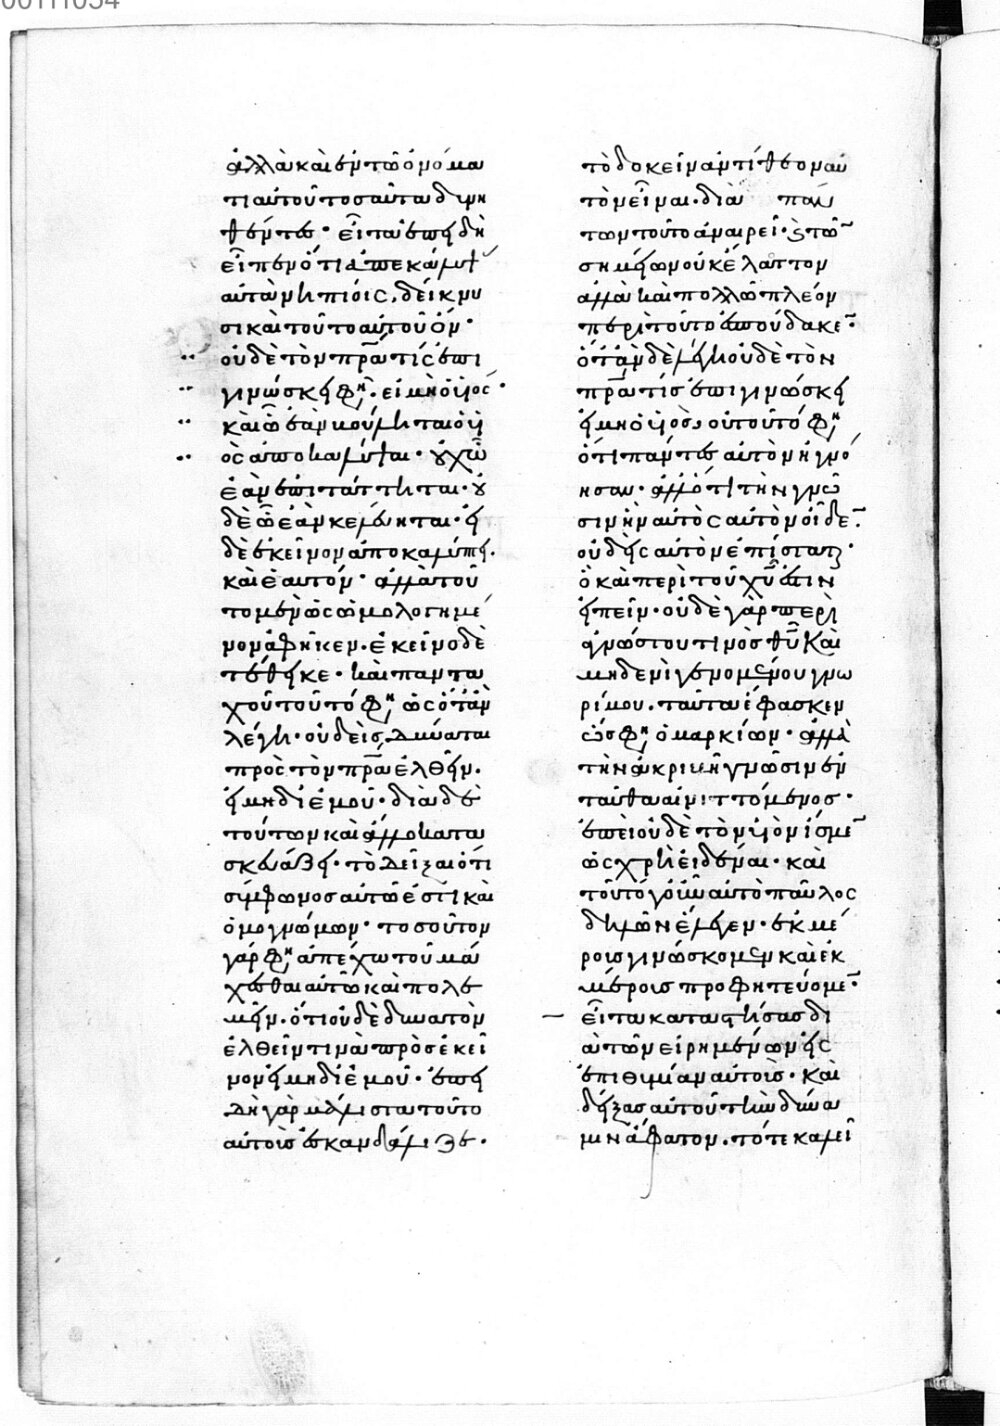 00111034
ἀλλὰ καὶ ἐν τῶ ὀνόμα
τι αὐτοῦ τοσαῦτα διηνη
θέντες· εἶτα ἐπειδὴ
εἶπεν ὅτι ἀπεκάλυψ
αὐτὰ νηπίοις, δείκνυ
σι καὶ τοῦτο αὐτοῦ ὄν·
οὐδὲ τὸν πρα τίς ἐπι
γινώσκει φη· εἰ μὴ ὁ υἱος·
καὶ ὧ ἐὰν βούληται ὁ υἱ
ὸς ἀποκαλύψαι· οὐχ ὧ
ἐὰν ἐπιτάττηται· οὐ
δὲ ὧ ἐὰν κελεύηται· εἰ
δὲ ἐκεῖνον ἀποκαλύπτει·
καὶ ἑαυτόν· ἀλλὰ τοῦ
το μὲν ὡς ὡμολογημέ
νον ἀφῆκεν. ἐκεῖνο δὲ
τέθεικε· καὶ πανταχοῦ
τοῦτό φη, ὡς ὅταν
λέγη· οὐδεὶς δύναται
πρὸς τὸν πρα ἐλθεῖν.
εἰ μὴ δι ἐμοῦ· διὰ δὲ
τούτων καὶ ἄλλο κατα
σκευάζει· τὸ δεῖξαι ὅτι
σύμφωνος αὐτῶ ἐστὶ καὶ
ὁμογνώμων· τοσοῦτον
γάρ φη, ἀπέχω τοῦ μά
χεσθαι αὐτῶ καὶ πολε
μεῖν. ὅτι οὐδὲ δυνατὸν
ἐλθεῖν τινὰ πρὸς ἐκεῖ
νον εἰ μὴ δι ἐμοῦ· ἐπει
δὴ γὰρ μάλιστα τοῦτο
αὐτοὺς ἐσκανδάλιζε·
τὸ δοκεῖν ἀντίθεον αὐ
τὸν εἶναι· διὰ παν
των τοῦτο ἀναιρεῖ· καὶ τῶ
σημείων οὐκ ἔλαττον
ἀλλὰ καὶ πολλῶ πλέον
περὶ τοῦτο ἐσπούδακε·
ὅταν δὲ λέγη οὐδὲ τὸν
πρα τίς ἐπιγινώσκει
εἰ μὴ ὁ υἱὸς, οὐ τοῦτό φη,
ὅτι πάντες αὐτὸν ἠγνό
ησαν· ἀλλ ὅτι τὴν γνῶ
σιν ἣν αὐτὸς αὐτὸν οἶδε·
οὐδεὶς αὐτὸν ἐπίσταται·
ὃ καὶ περὶ τοῦ χυ ἐστιν
εἰπεῖν· οὐδὲ γὰρ περὶ
ἀγνώστου τινὸς θυ καὶ
μηδενὶ γενομένου γνω
ρίμου. ταῦτα ἔφασκεν
ὥς φη, ὁ μαρκίων· ἀλλὰ
τὴν ἀκριβῆ γνῶσιν ἐν
ταῦθα αἰνιττόμενος·
ἐπεὶ οὐδὲ τὸν υἱὸν ἴσμε
ὡς χρὴ εἰδέναι· καὶ
τοῦτο γοῦν αὐτὸ παῦλος
δηλῶν ἔλεγεν· ἐκ μέ
ρους γινώσκομεν καὶ ἐκ
μέρους προφητεύομε·
εἶτα καταστήσας δι
ὰ τῶν εἰρημένων εἰς
ἐπιθυμίαν αὐτοὺς· καὶ
δείξας αὐτοῦ τὴν δύνα
μιν ἄφατον. τότε καλεῖ